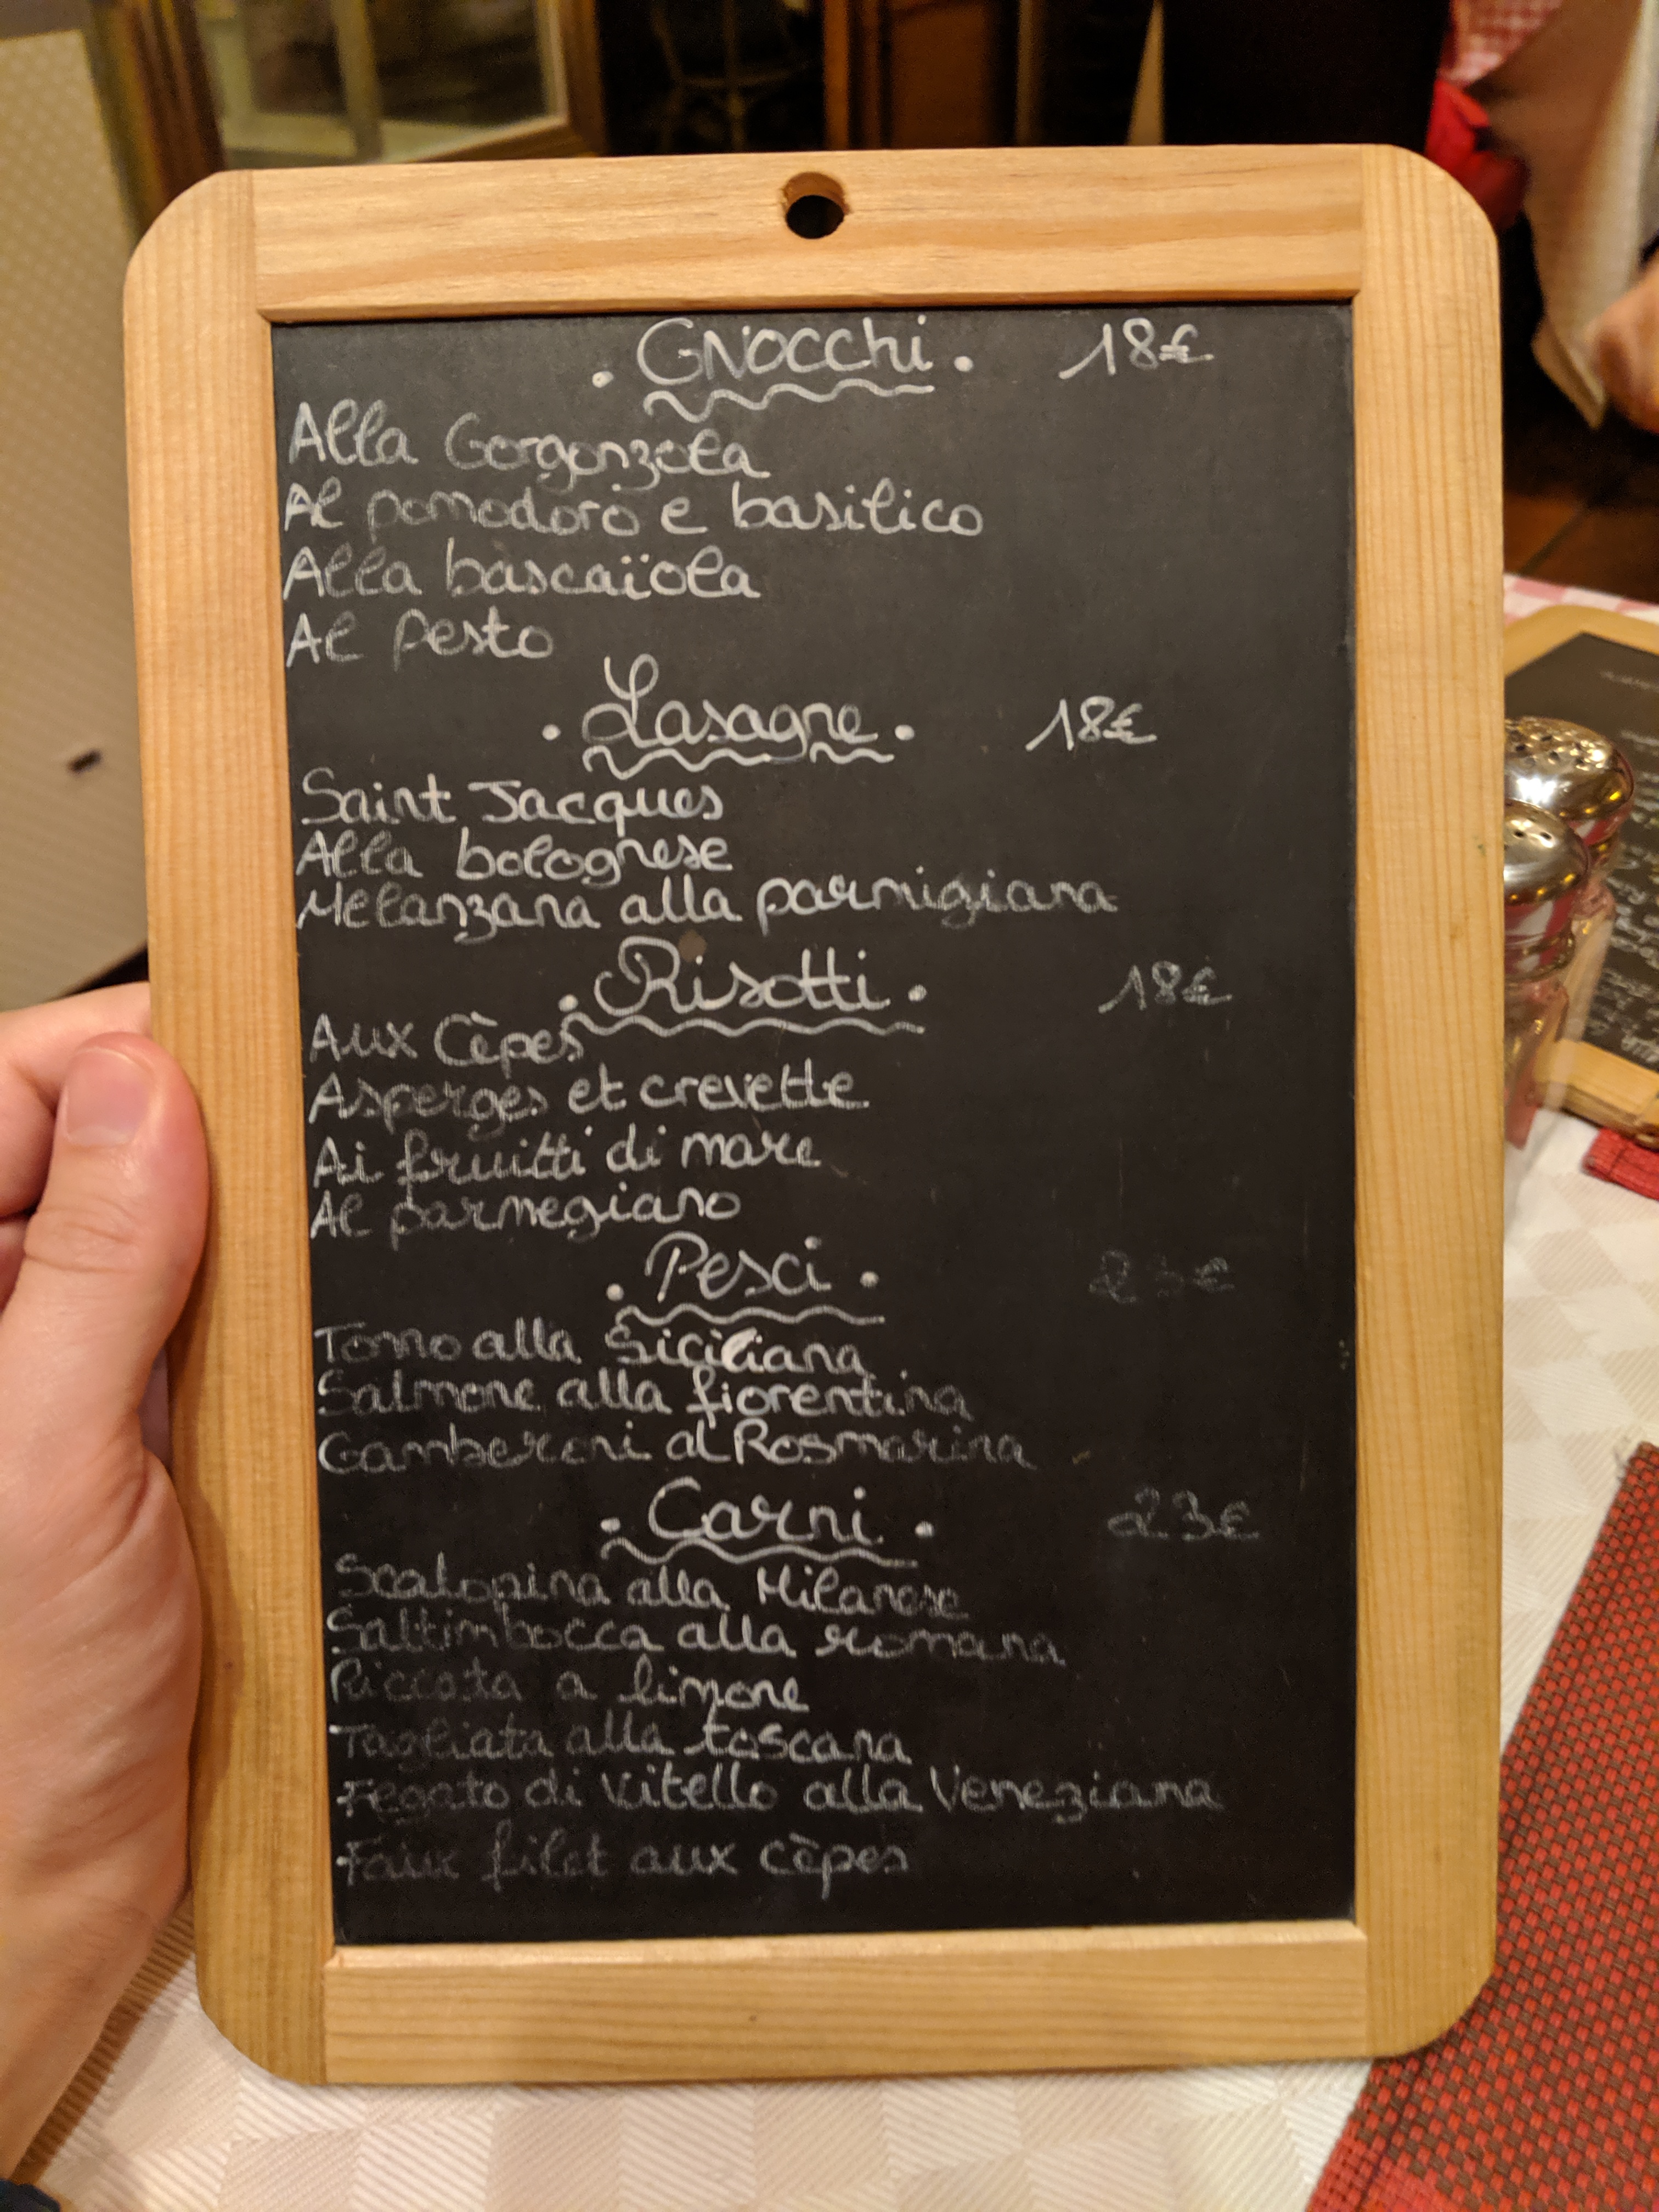 . Gnocchi . 18€
Alla Gorgonzola
Al pomodoro e basilico
Alla bascaïola
Al Pesto
. Lasagne . 18€
Saint Jacques
Alla bolognese
Melanzana alla parmigiana
. Risotti . 18€
Aux Cèpes
Asperges et crevette
Ai fruitti di mare
Al parmegiano
. Pesci . 23€
Tonno alla Siciliana
Salmone alla fiorentina
Gamberoni al Rosmarina
. Carni . 23€
Scalopina alla Milanese
Saltimbocca alla romana
Piccata a limone
Tagliata alla toscana
Fegato di Vitello alla Veneziana
Faux filet aux cèpes